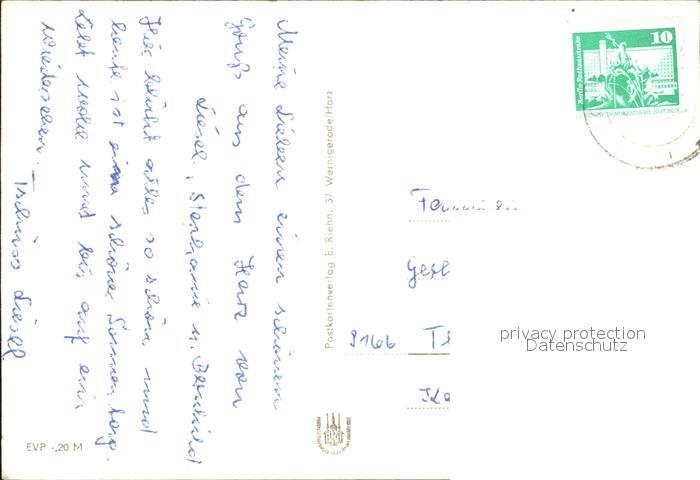 Meine Lieben einen schönen
Gruß aus dem Harz von
Liesel, Stephanie u. Bernhild
Hier blüht alles so schön und
heute ist ein schöner Sonnentag.
Lebt wohl und bis auf ein
Wiedersehen. – Tschüss Liesel
EVP -,20 M
Postkartenverlag E. Riehn, 37 Wernigerode/Harz
Berlin-Rathausstraße
10
DEUTSCHE DEMOKRATISCHE REPUBLIK
Familie
9166
privacy protection
Datenschutz